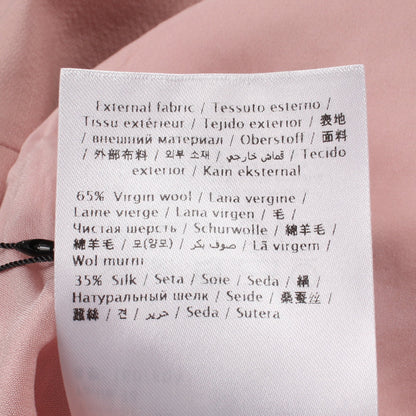 External fabric / Tessuto esterno /
Tissu extérieur / Tejido exterior / 表地
/ внешний материал / Oberstoff / 面料
/ 外部布料 / 외부 소재 / قماش خارجي / Tecido
exterior / Kain eksternal
65% Virgin wool / Lana vergine /
Laine vierge / Lana virgen / 毛 /
Чистая шерсть / Schurwolle / 綿羊毛 /
綿羊毛 / 모(양모) / صوف بكر / Lã virgem /
Wol murni
35% Silk / Seta / Soie / Seda / 絹 /
Натуральный шелк / Seide / 桑蚕丝 /
蠶絲 / 견 / حرير / Seda / Sutera